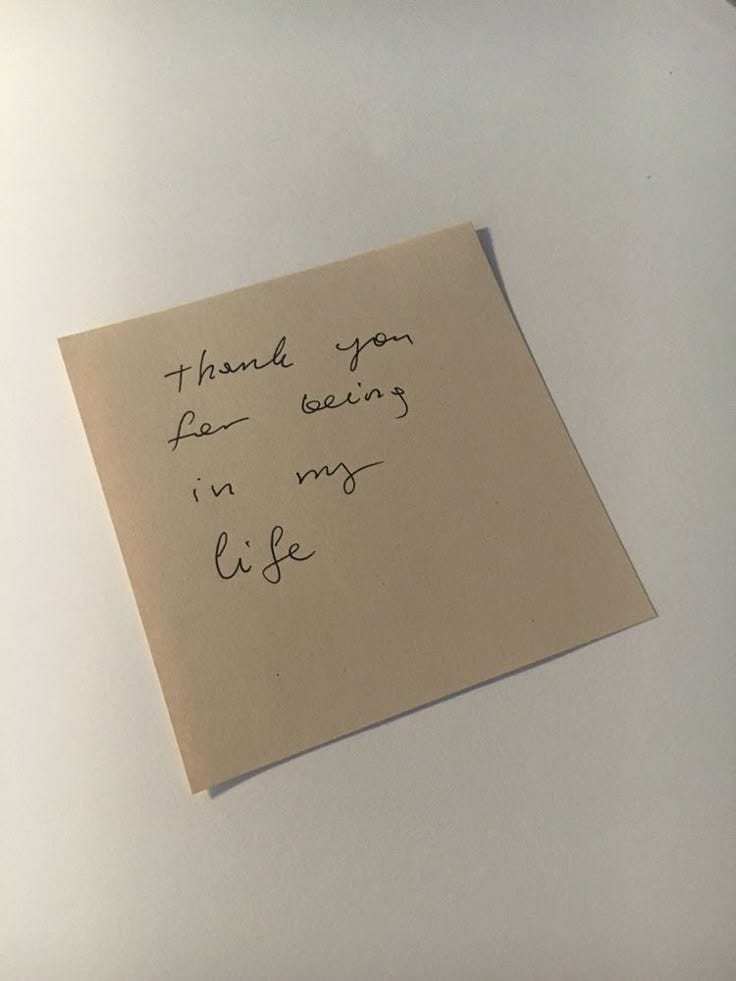 thank you
for being
in my
life